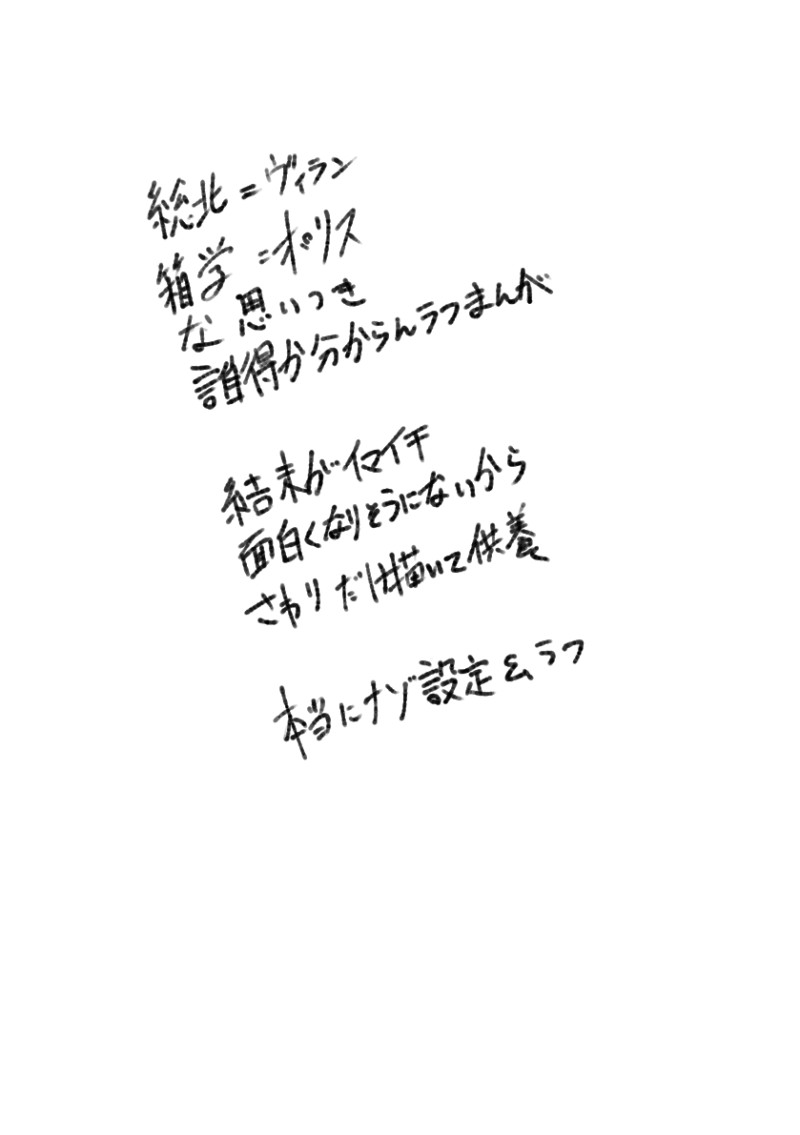 総北=ヴィラン
箱学=ポリス
な思いつき
誰得か分からんラフまんが
結末がイマイチ
面白くなりそうにないから
さわりだけ描いて供養
本当にナゾ設定&ラフ